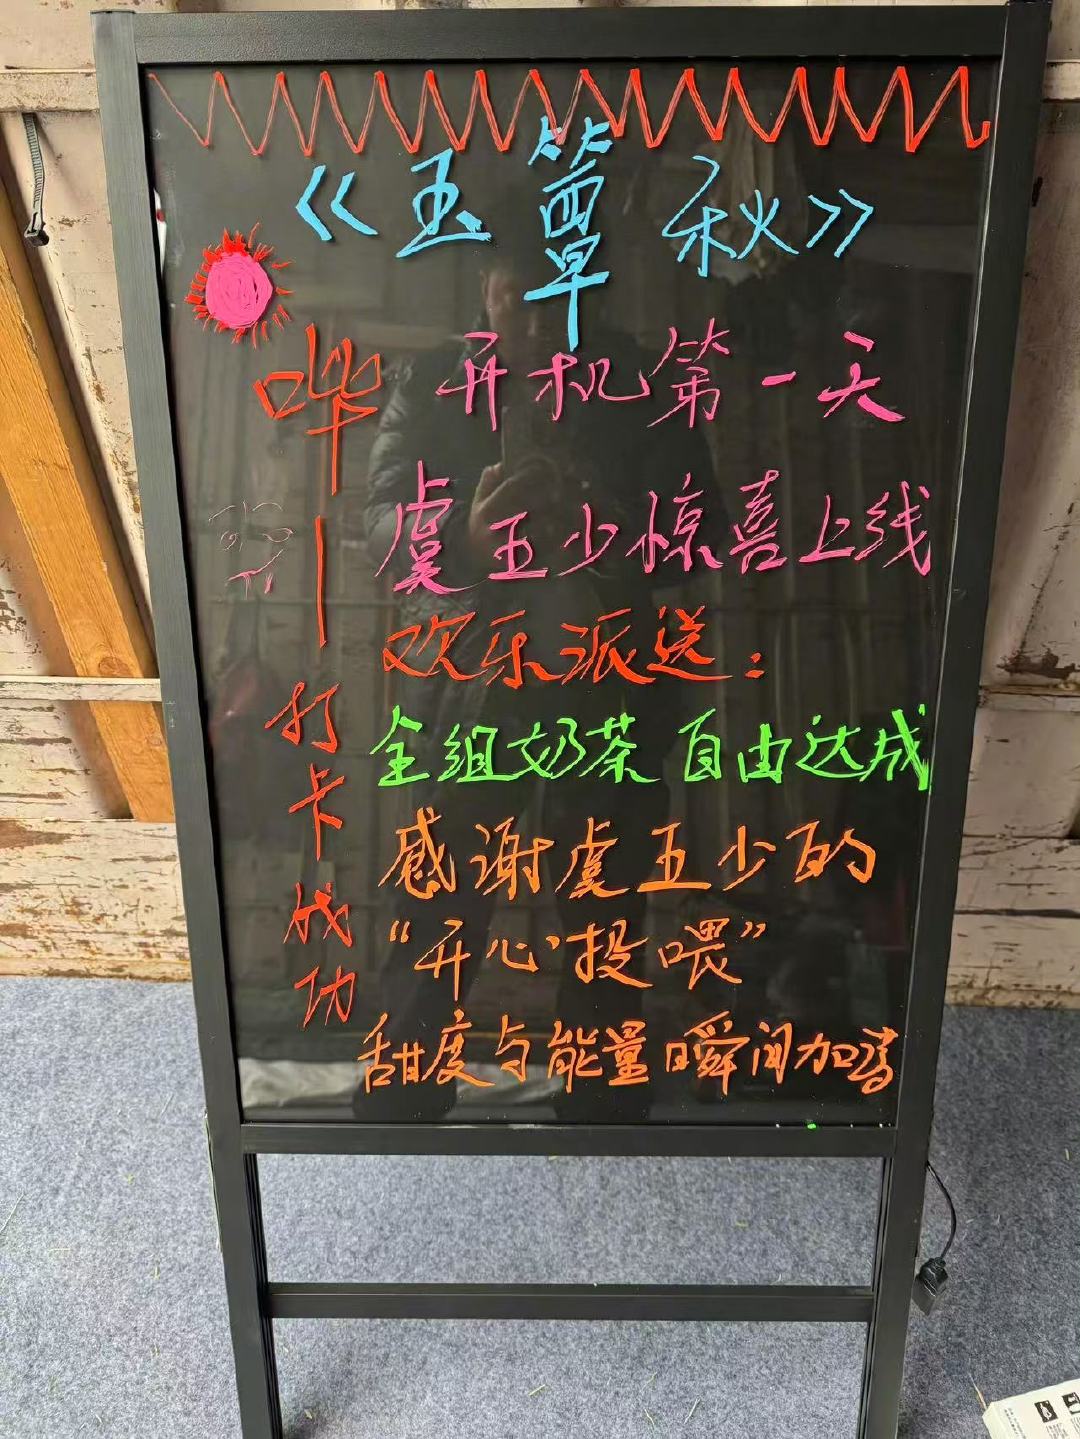 《玉簟秋》
开机第一天
虞五少惊喜上线
欢乐派送：
全组奶茶 自由达成
感谢虞五少的
“开心投喂”
甜度与能量瞬间加满
哗
打卡成功